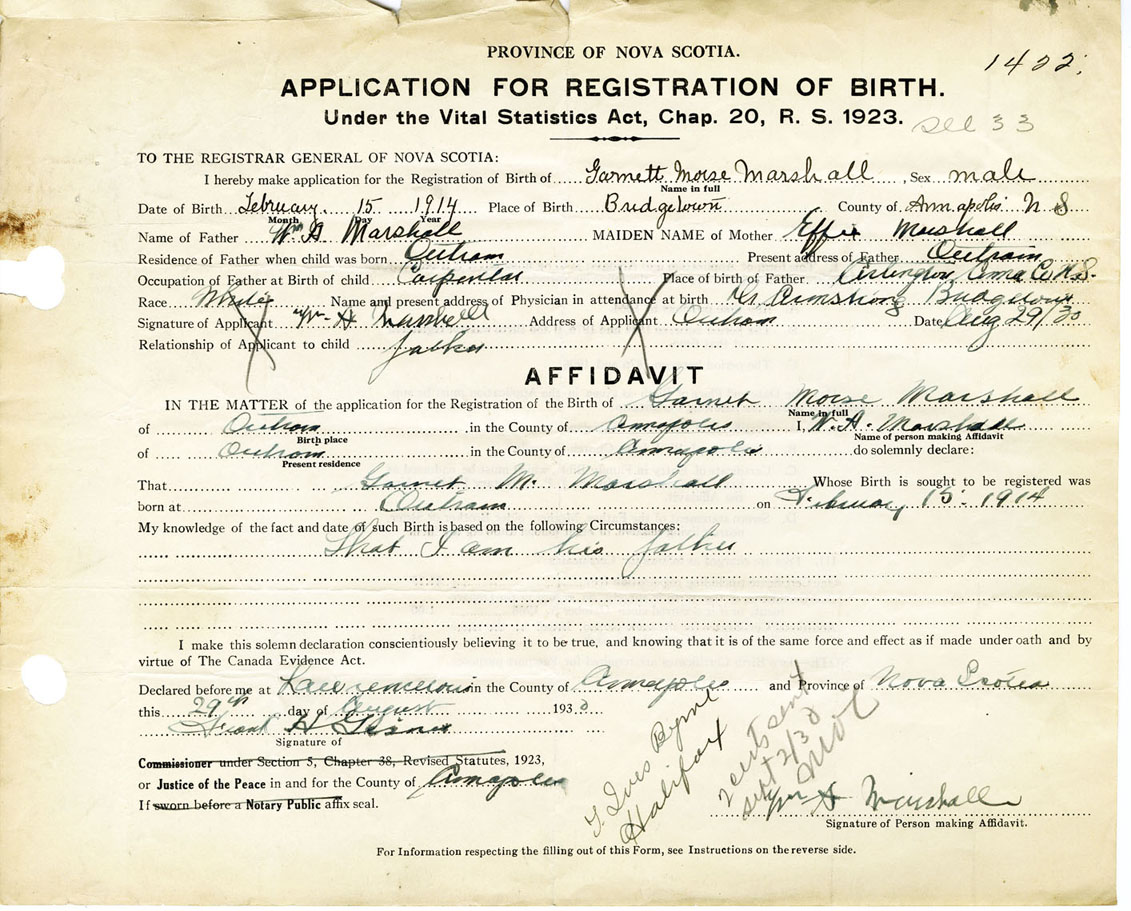 PROVINCE OF NOVA SCOTIA.
1422
APPLICATION FOR REGISTRATION OF BIRTH.
Under the Vital Statistics Act, Chap. 20, R. S. 1923.
33
TO THE REGISTRAR GENERAL OF NOVA SCOTIA:
I hereby make application for the Registration of Birth of Garnett Morse Marshall, Sex male
Name in full
Date of Birth February 15 1914 Place of Birth Bridgetown County of Annapolis N S
Month Day Year
Name of Father Wm H Marshall MAIDEN NAME of Mother Effie Marshall
Residence of Father when child was born Outram Present address of Father Outram
Occupation of Father at Birth of child Carpenter Place of birth of Father Arlington Anna Co N.S.
Race White Name and present address of Physician in attendance at birth Dr. Armstrong Bridgetown
Signature of Applicant Wm H Marshall Address of Applicant Outram Date Aug 29/30
Relationship of Applicant to child father
AFFIDAVIT
IN THE MATTER of the application for the Registration of the Birth of Garnet Morse Marshall
Name in full
of Outram in the County of Annapolis I, W. H. Marshall
Birth place Name of person making Affidavit
of Outram in the County of Annapolis do solemnly declare:
Present residence
That Garnet M. Marshall Whose Birth is sought to be registered was
born at Outram on February 15. 1914
My knowledge of the fact and date of such Birth is based on the following Circumstances:
That I am his father
I make this solemn declaration conscientiously believing it to be true, and knowing that it is of the same force and effect as if made under oath and by
virtue of The Canada Evidence Act.
Declared before me at Lawrencetown in the County of Annapolis and Province of Nova Scotia
this 29th day of August 1930
Frank H
Signature of
Commissioner under Section 5, Chapter 38, Revised Statutes, 1923,
or Justice of the Peace in and for the County of Annapolis
If sworn before a Notary Public affix seal.
T. Ives Byrne
Halifax
2 certs sent
Sept 2/30
Wm H Marshall
Signature of Person making Affidavit.
For Information respecting the filling out of this Form, see Instructions on the reverse side.